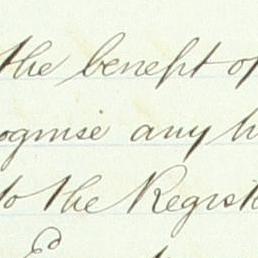 the benefit of
ognise any h
to the Regist